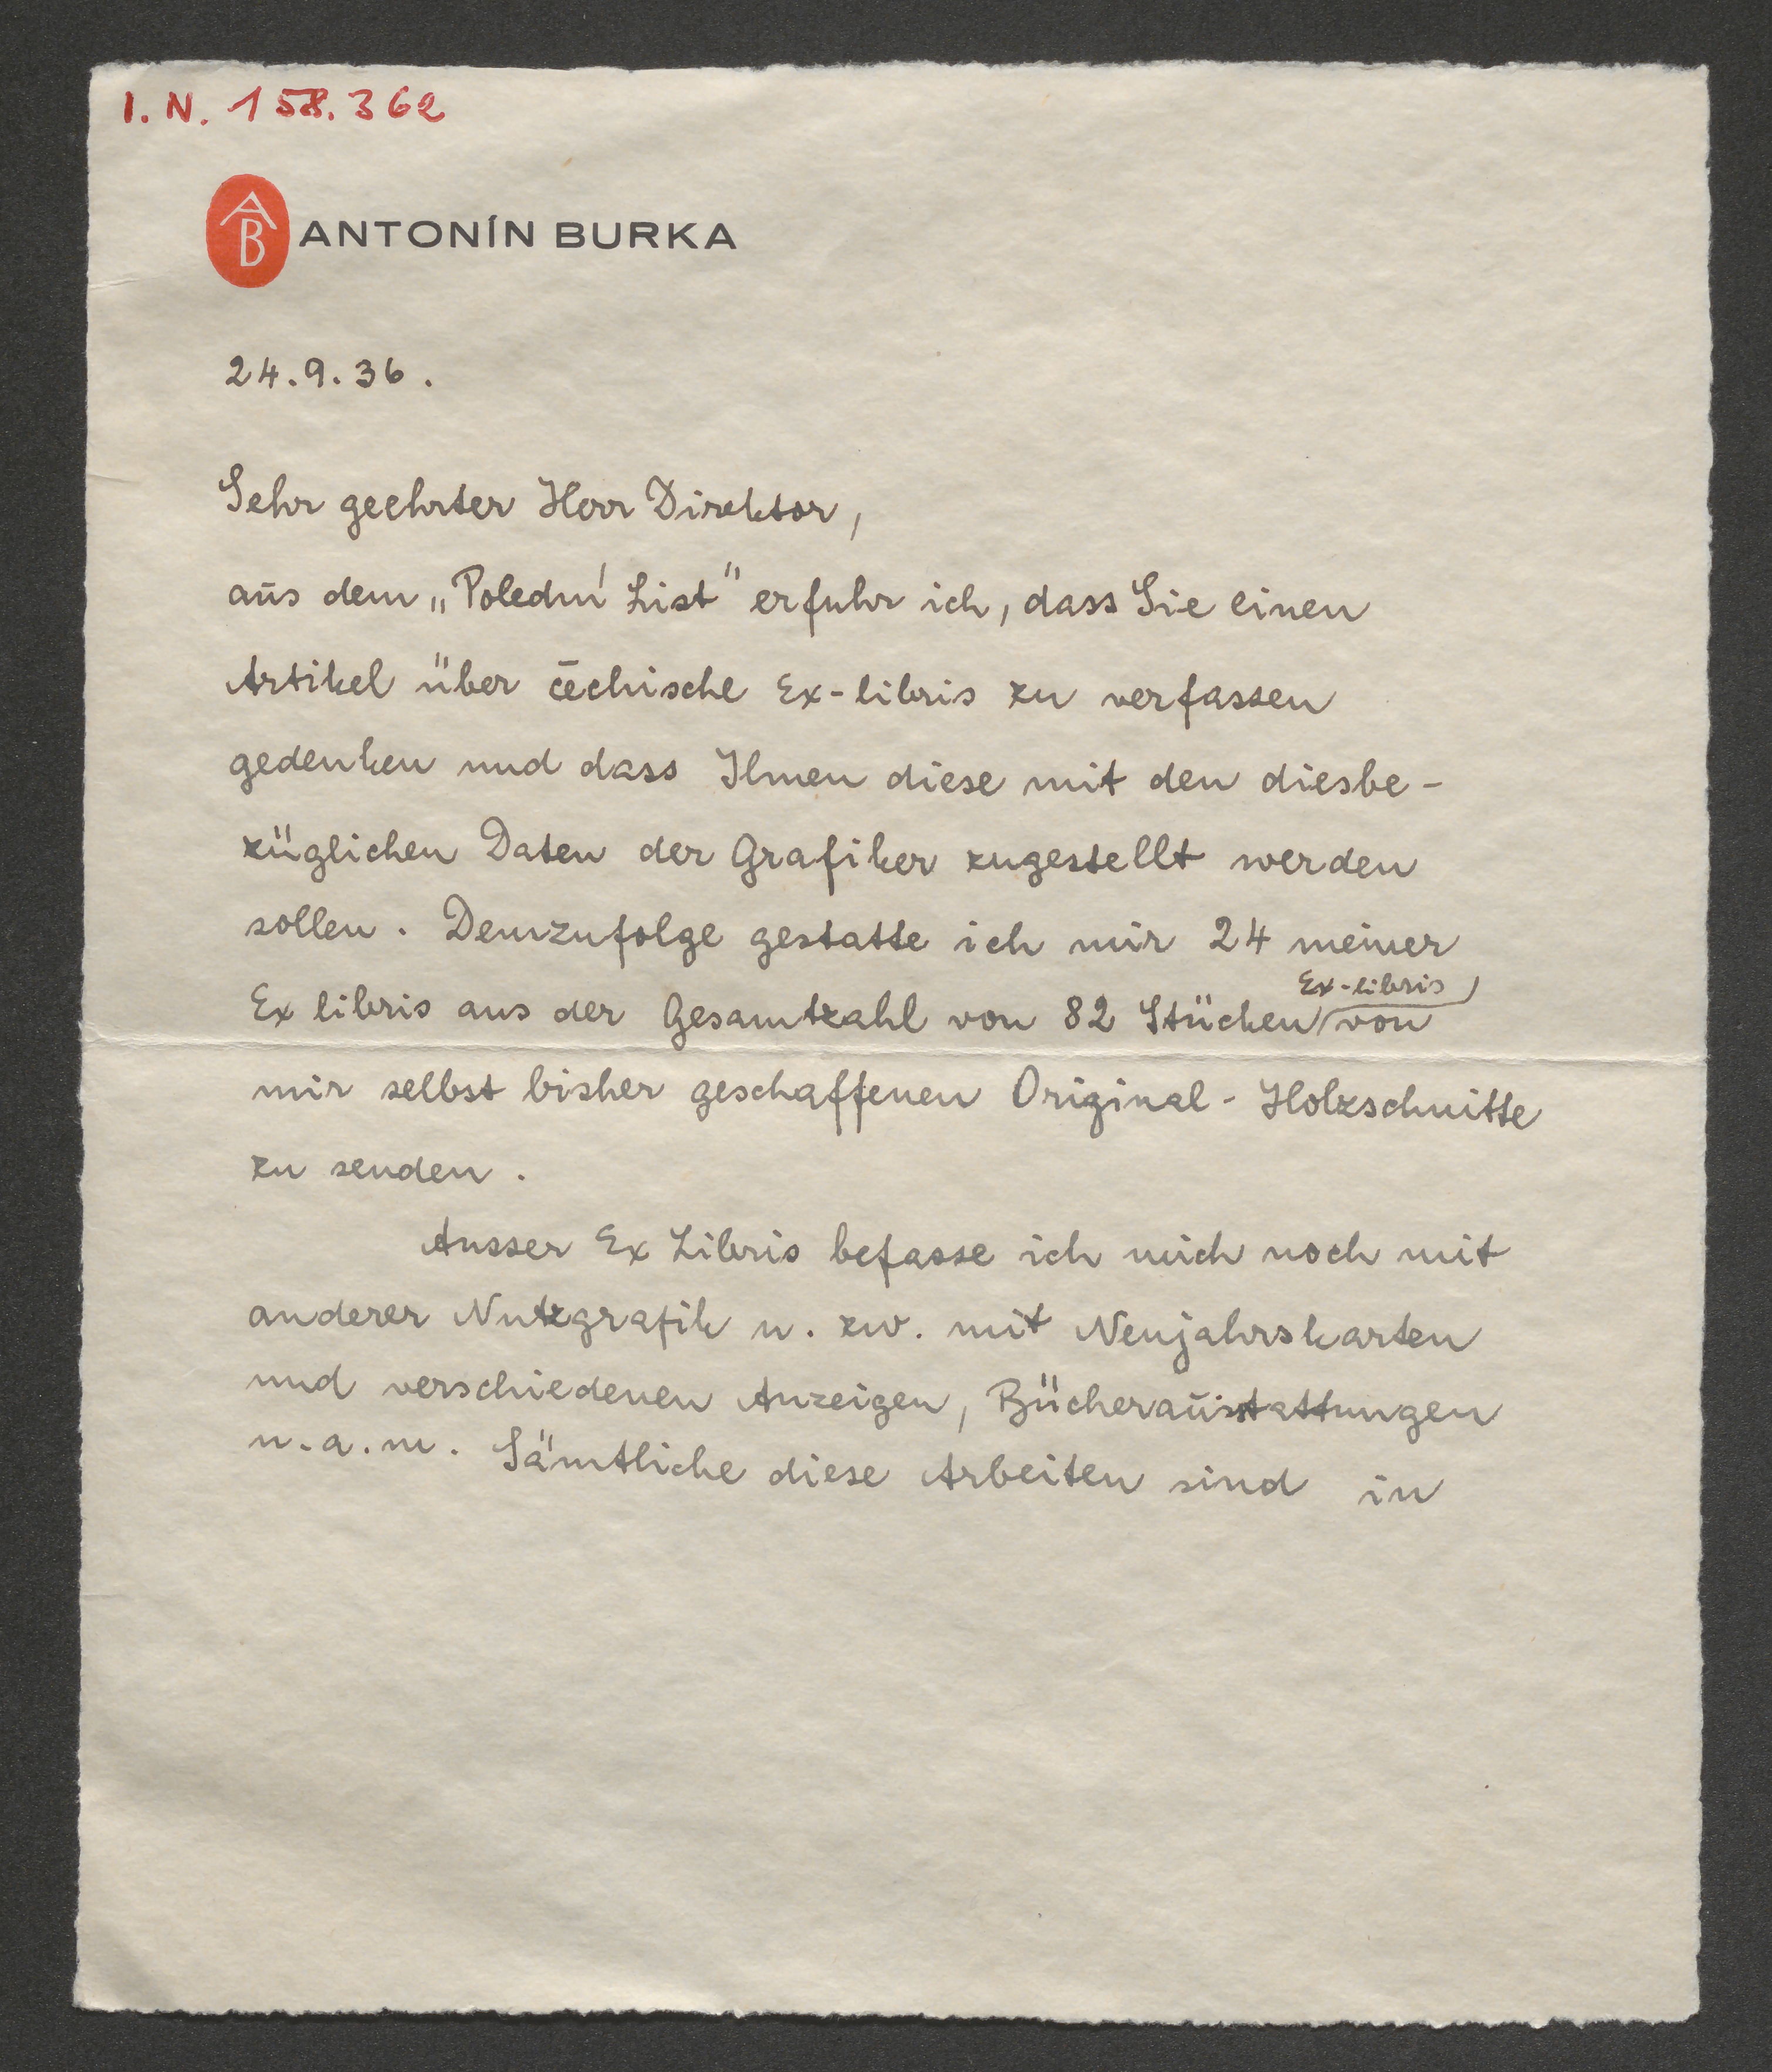 I. N. 158.362
AB ANTONÍN BURKA
24.9.36.
Sehr geehrter Herr Direktor,
aus dem „Polední List" erfuhr ich, dass Sie einen
Artikel über čechische Ex-libris zu verfassen
gedenken und dass Ihnen diese mit den diesbe-
züglichen Daten der Grafiker zugestellt werden
sollen. Demzufolge gestatte ich mir 24 meiner
Ex-libris
Ex libris aus der Gesamtzahl von 82 Stücken von
mir selbst bisher geschaffenen Original-Holzschnitte
zu senden.
Ausser Ex Libris befasse ich mich noch mit
anderer Nutzgrafik u. zw. mit Neujahrskarten
und verschiedenen Anzeigen, Bücherausstattungen
u. a. m. Sämtliche diese Arbeiten sind in